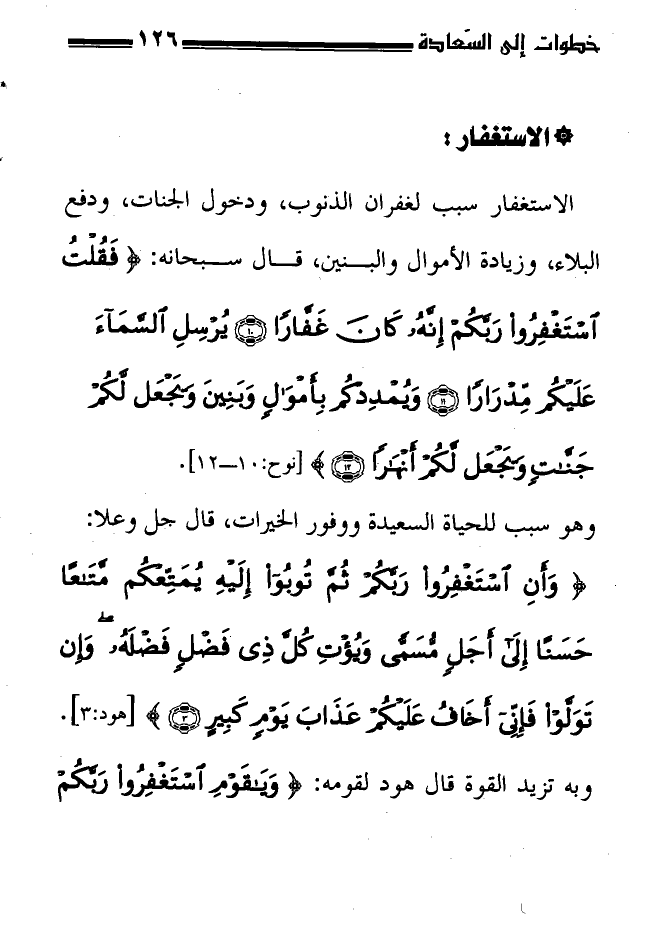 خطوات إلى السعادة ١٢٦
۞ الاستغفار :
الاستغفار سبب لغفران الذنوب، ودخول الجنات، ودفع
البلاء، وزيادة الأموال والبنين، قال سبحانه: ﴿ فَقُلْتُ
ٱسْتَغْفِرُوا۟ رَبَّكُمْ إِنَّهُۥ كَانَ غَفَّارًا ١٠ يُرْسِلِ ٱلسَّمَآءَ
عَلَيْكُم مِّدْرَارًا ١١ وَيُمْدِدْكُم بِأَمْوَٰلٍ وَبَنِينَ وَيَجْعَل لَّكُمْ
جَنَّٰتٍ وَيَجْعَل لَّكُمْ أَنْهَٰرًا ١٢ ﴾ [نوح:١٠–١٢].
وهو سبب للحياة السعيدة ووفور الخيرات، قال جل وعلا:
﴿ وَأَنِ ٱسْتَغْفِرُوا۟ رَبَّكُمْ ثُمَّ تُوبُوٓا۟ إِلَيْهِ يُمَتِّعْكُم مَّتَٰعًا
حَسَنًا إِلَىٰٓ أَجَلٍ مُّسَمًّى وَيُؤْتِ كُلَّ ذِى فَضْلٍ فَضْلَهُۥ ۖ وَإِن
تَوَلَّوْا۟ فَإِنِّىٓ أَخَافُ عَلَيْكُمْ عَذَابَ يَوْمٍ كَبِيرٍ ٣ ﴾ [هود:٣].
وبه تزيد القوة قال هود لقومه: ﴿ وَيَٰقَوْمِ ٱسْتَغْفِرُوا۟ رَبَّكُمْ